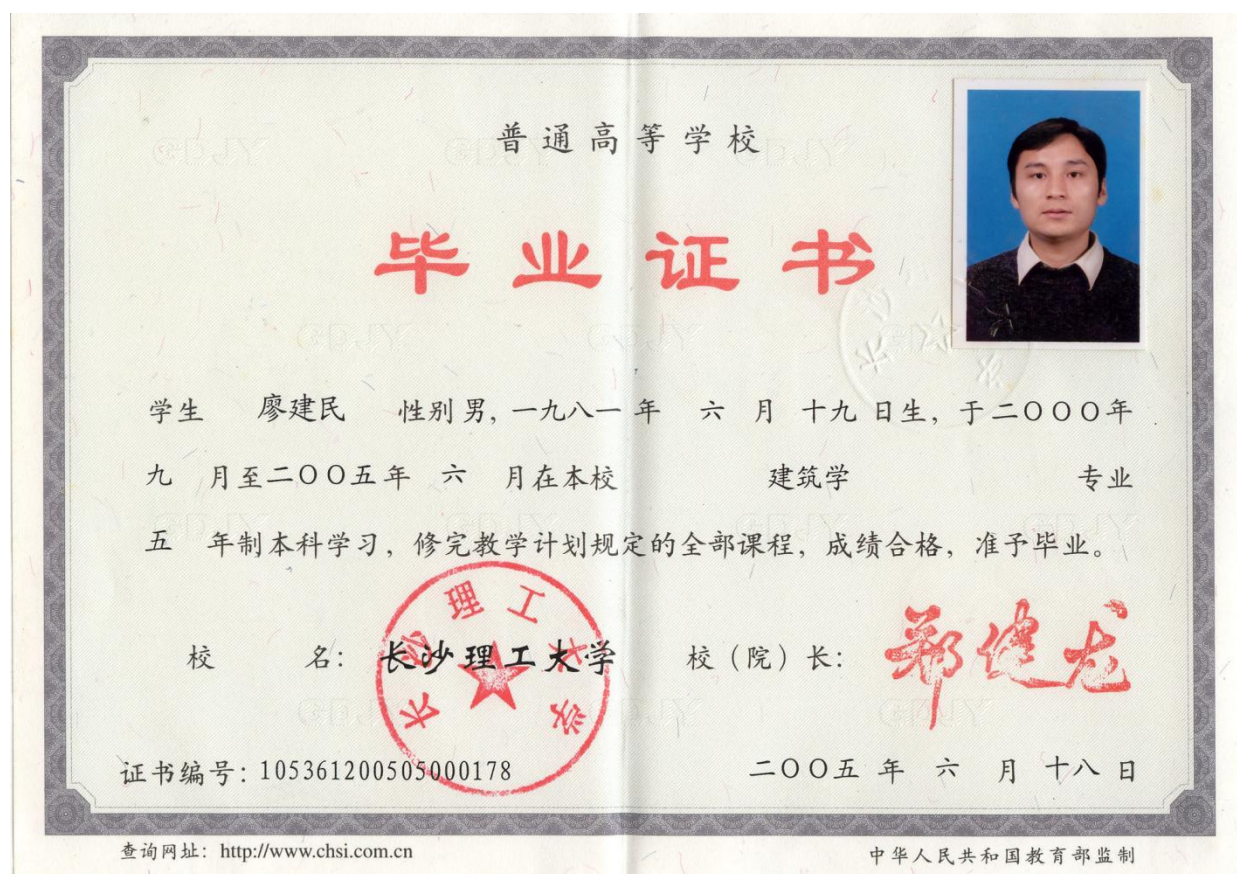 普通高等学校
毕业证书
学生 廖建民 性别 男, 一九八一 年 六 月 十九 日生, 于二〇〇〇年
九 月至二〇〇五年 六 月在本校 建筑学 专业
五 年制本科学习, 修完教学计划规定的全部课程, 成绩合格, 准予毕业。
校 名: 长沙理工大学 校（院）长: 郑健龙
长沙理工大学
证书编号: 105361200505000178 二〇〇五 年 六 月 十八 日
查询网址: http://www.chsi.com.cn 中华人民共和国教育部监制